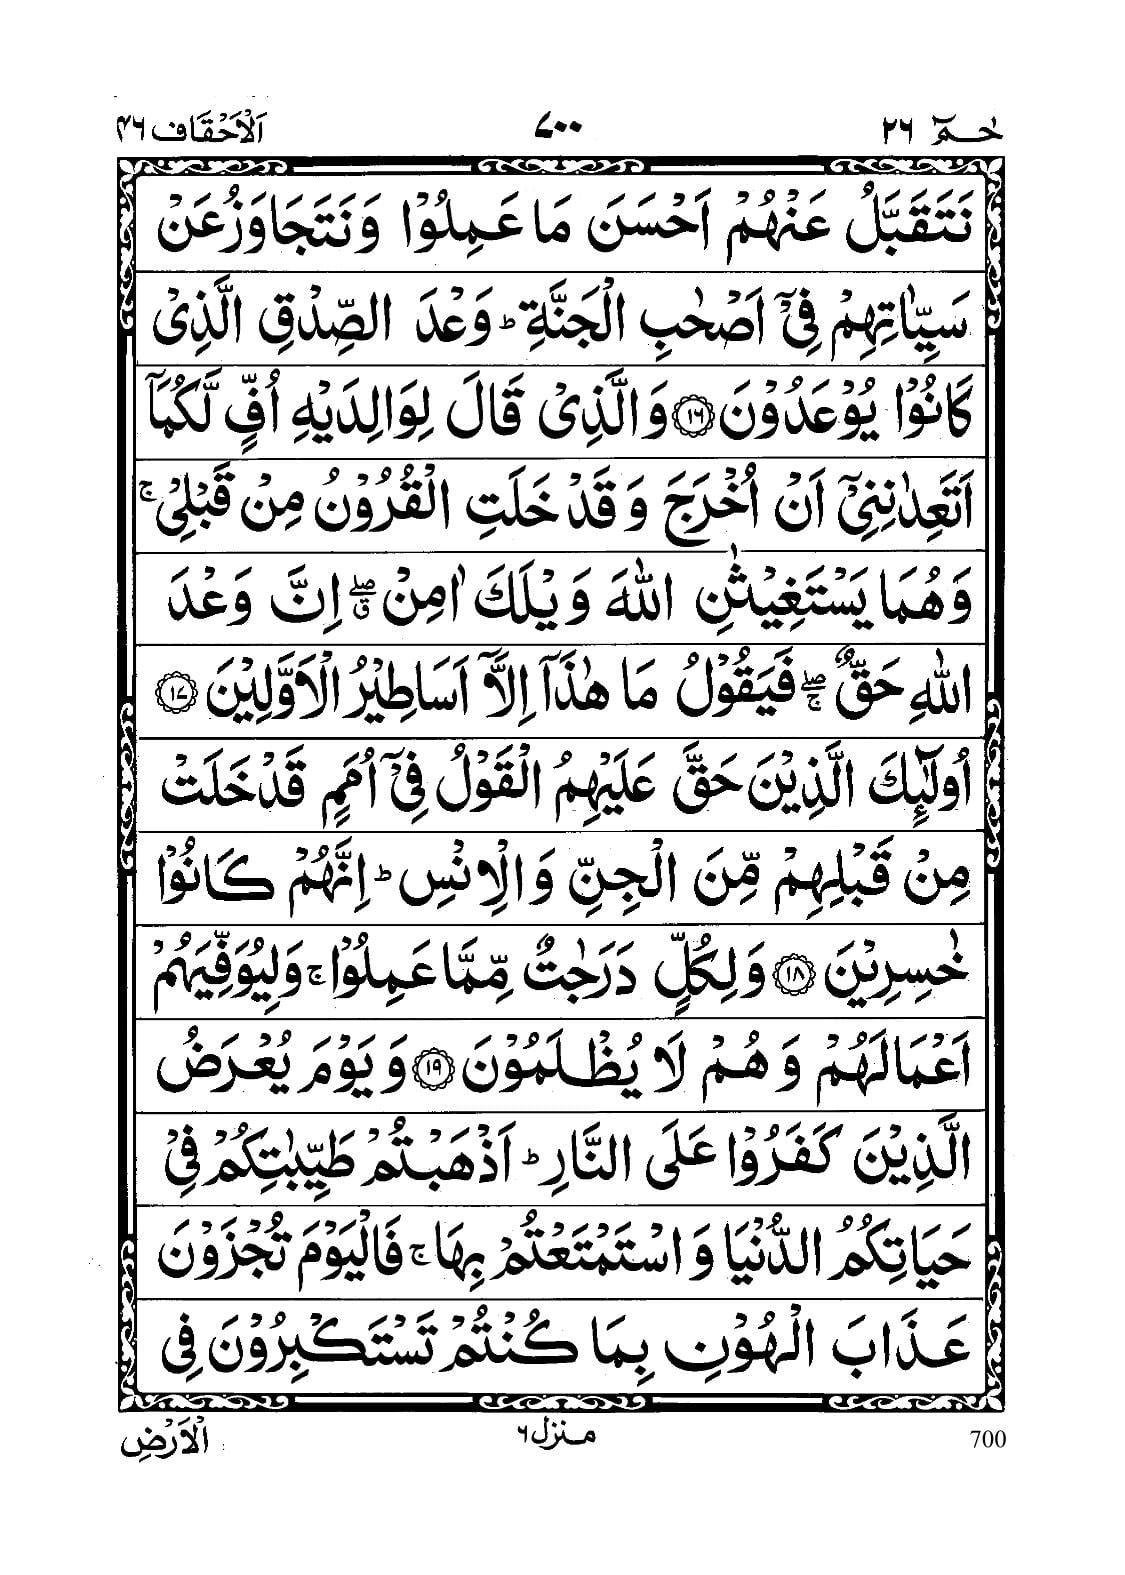 حٰـمٓ ٢٦ ٧٠٠ اَلْاَحْقَاف ٤٦
نَتَقَبَّلُ عَنْهُمْ اَحْسَنَ مَا عَمِلُوْا وَنَتَجَاوَزُ عَنْ
سَيِّاٰتِهِمْ فِيْٓ اَصْحٰبِ الْجَنَّةِ ؕ وَعْدَ الصِّدْقِ الَّذِيْ
كَانُوْا يُوْعَدُوْنَ ١٦ وَالَّذِيْ قَالَ لِوَالِدَيْهِ اُفٍّ لَّكُمَآ
اَتَعِدٰنِنِيْٓ اَنْ اُخْرَجَ وَقَدْ خَلَتِ الْقُرُوْنُ مِنْ قَبْلِيْ ۚ
وَهُمَا يَسْتَغِيْثٰنِ اللّٰهَ وَيْلَكَ اٰمِنْ ۖۗ اِنَّ وَعْدَ
اللّٰهِ حَقٌّ ۖۚ فَيَقُوْلُ مَا هٰذَآ اِلَّآ اَسَاطِيْرُ الْاَوَّلِيْنَ ١٧
اُولٰٓئِكَ الَّذِيْنَ حَقَّ عَلَيْهِمُ الْقَوْلُ فِيْٓ اُمَمٍ قَدْ خَلَتْ
مِنْ قَبْلِهِمْ مِّنَ الْجِنِّ وَالْاِنْسِ ؕ اِنَّهُمْ كَانُوْا
خٰسِرِيْنَ ١٨ وَلِكُلٍّ دَرَجٰتٌ مِّمَّا عَمِلُوْا ۚ وَلِيُوَفِّيَهُمْ
اَعْمَالَهُمْ وَهُمْ لَا يُظْلَمُوْنَ ١٩ وَيَوْمَ يُعْرَضُ
الَّذِيْنَ كَفَرُوْا عَلَى النَّارِ ؕ اَذْهَبْتُمْ طَيِّبٰتِكُمْ فِيْ
حَيَاتِكُمُ الدُّنْيَا وَاسْتَمْتَعْتُمْ بِهَا ۚ فَالْيَوْمَ تُجْزَوْنَ
عَذَابَ الْهُوْنِ بِمَا كُنْتُمْ تَسْتَكْبِرُوْنَ فِي
700 منزل ٦ الْاَرْضِ